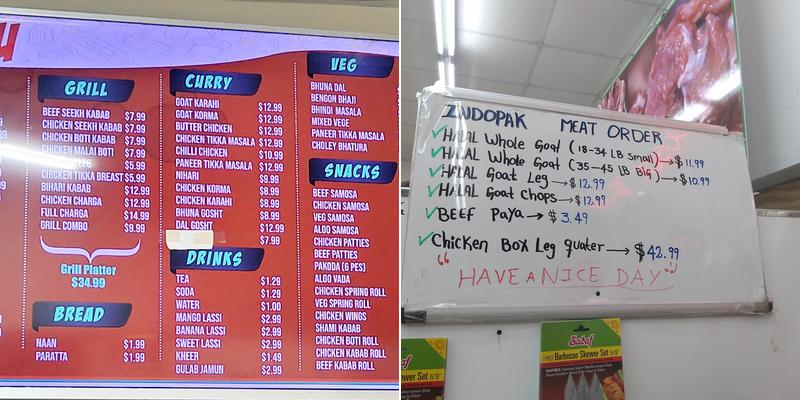 GRILL
BEEF SEEKH KABAB $7.99
CHICKEN SEEKH KABAB $7.99
CHICKEN BOTI KABAB $7.99
CHICKEN MALAI BOTI $7.99
$5.99
CHICKEN TIKKA BREAST $5.99
BIHARI KABAB $12.99
CHICKEN CHARGA $12.99
FULL CHARGA $14.99
GRILL COMBO $9.99
Grill Platter
$34.99
BREAD
NAAN $1.99
PARATTA $1.99
CURRY
GOAT KARAHI $12.99
GOAT KORMA $12.99
BUTTER CHICKEN $12.99
CHICKEN TIKKA MASALA $12.99
CHILLI CHICKEN $10.99
PANEER TIKKA MASALA $12.99
NIHARI $9.99
CHICKEN KORMA $8.99
CHICKEN KARAHI $8.99
BHUNA GOSHT $8.99
DAL GOSHT $12.99
$7.99
DRINKS
TEA $1.29
SODA $1.29
WATER $1.00
MANGO LASSI $2.99
BANANA LASSI $2.99
SWEET LASSI $2.99
KHEER $1.49
GULAB JAMUN $2.99
VEG
BHUNA DAL
BENGON BHAJI
BHINDI MASALA
MIXED VEGE
PANEER TIKKA MASALA
CHOLEY BHATURA
SNACKS
BEEF SAMOSA
CHICKEN SAMOSA
VEG SAMOSA
ALOO SAMOSA
CHICKEN PATTIES
BEEF PATTIES
PAKODA (6 PES)
ALOO VADA
CHICKEN SPRING ROLL
VEG SPRING ROLL
CHICKEN WINGS
SHAMI KABAB
CHICKEN BOTI ROLL
CHICKEN KABAB ROLL
BEEF KABAB ROLL
INDOPAK MEAT ORDER
✓ HALAL Whole Goal (18-34 LB Small) → $11.99
✓ HALAL Whole Goat (35-45 LB Big) → $10.99
✓ HALAL Goat Leg → $12.99
✓ HALAL Goat Chops → $12.99
✓ BEEF PaYa → $3.49
✓ Chicken Box Leg quater → $42.99
“HAVE A NICE DAY”
Sadaf
Barbecue Skewer Set
ewer Set